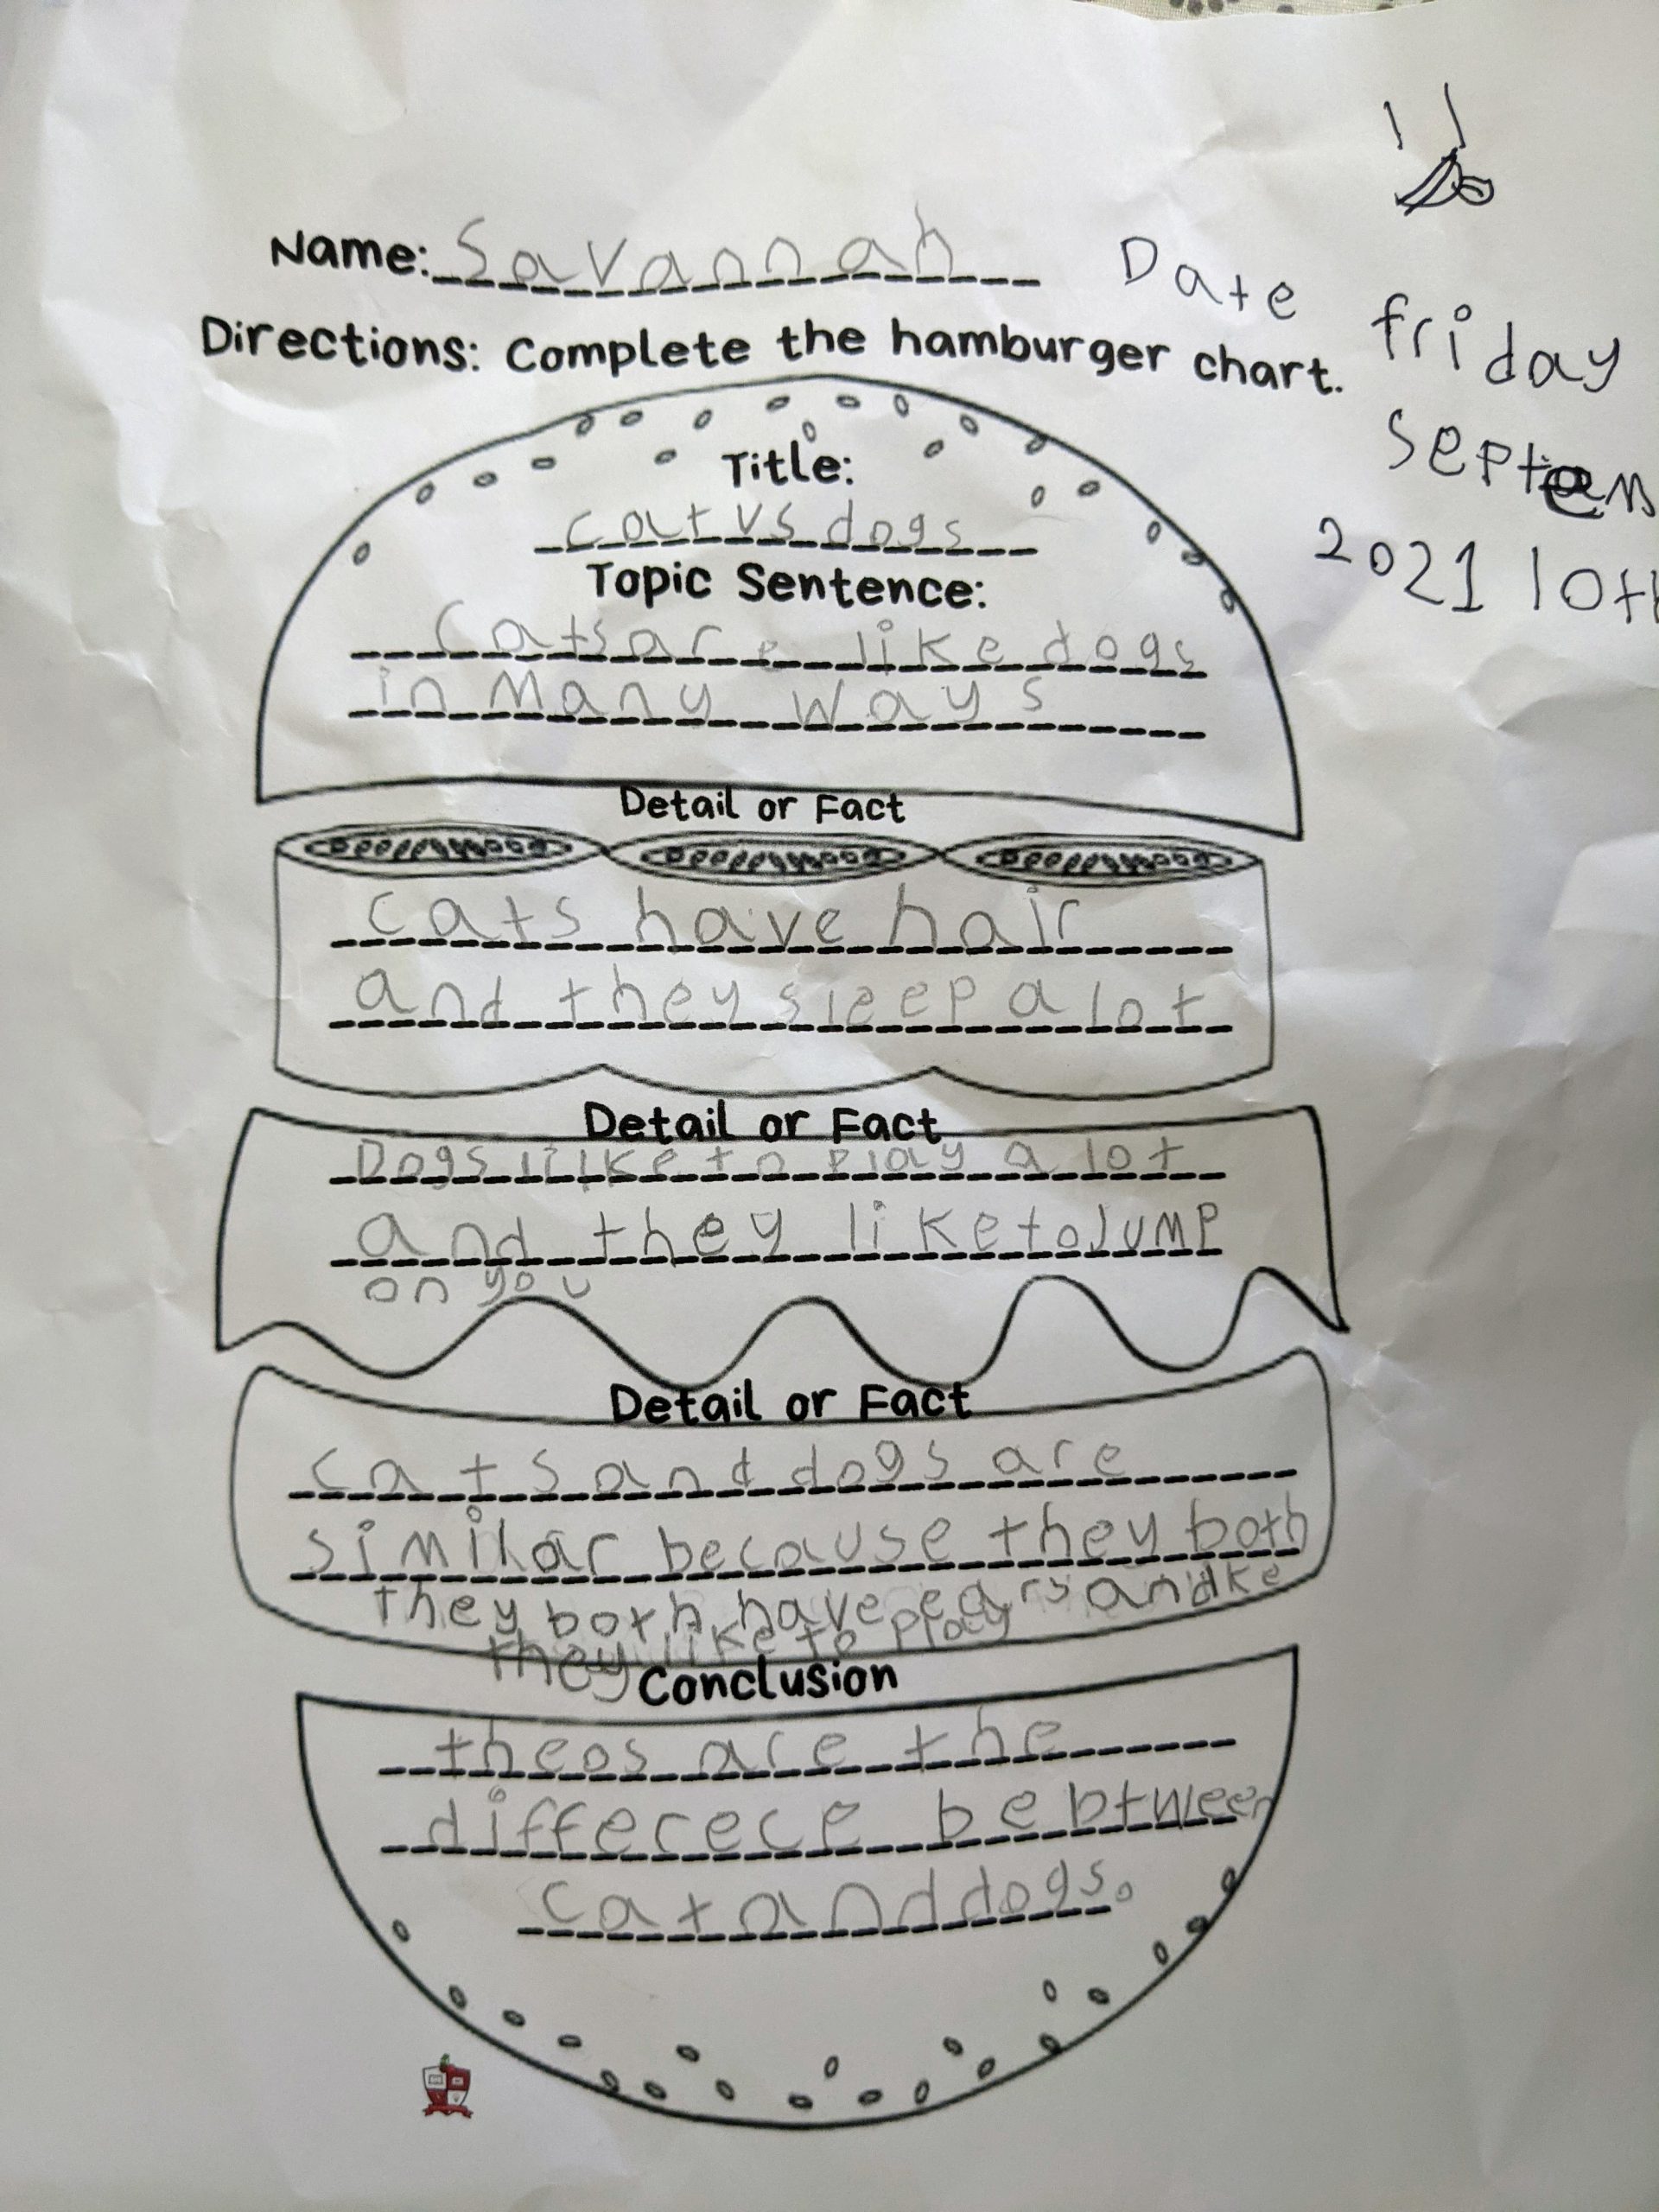 Name: Savannah
Date
friday
Septem
2021 10th
Directions: Complete the hamburger chart.
Title:
cat vs dogs
Topic Sentence:
Cats are like dogs
in many ways
Detail or Fact
cats have hair
and they sleep a lot
Detail or Fact
Dogs like to play a lot
and they like to Jump
on you
Detail or Fact
cats and dogs are
similar because they both
they both have ears and
they like to play
Conclusion
theos are the
differece bebtween
cat and dogs.